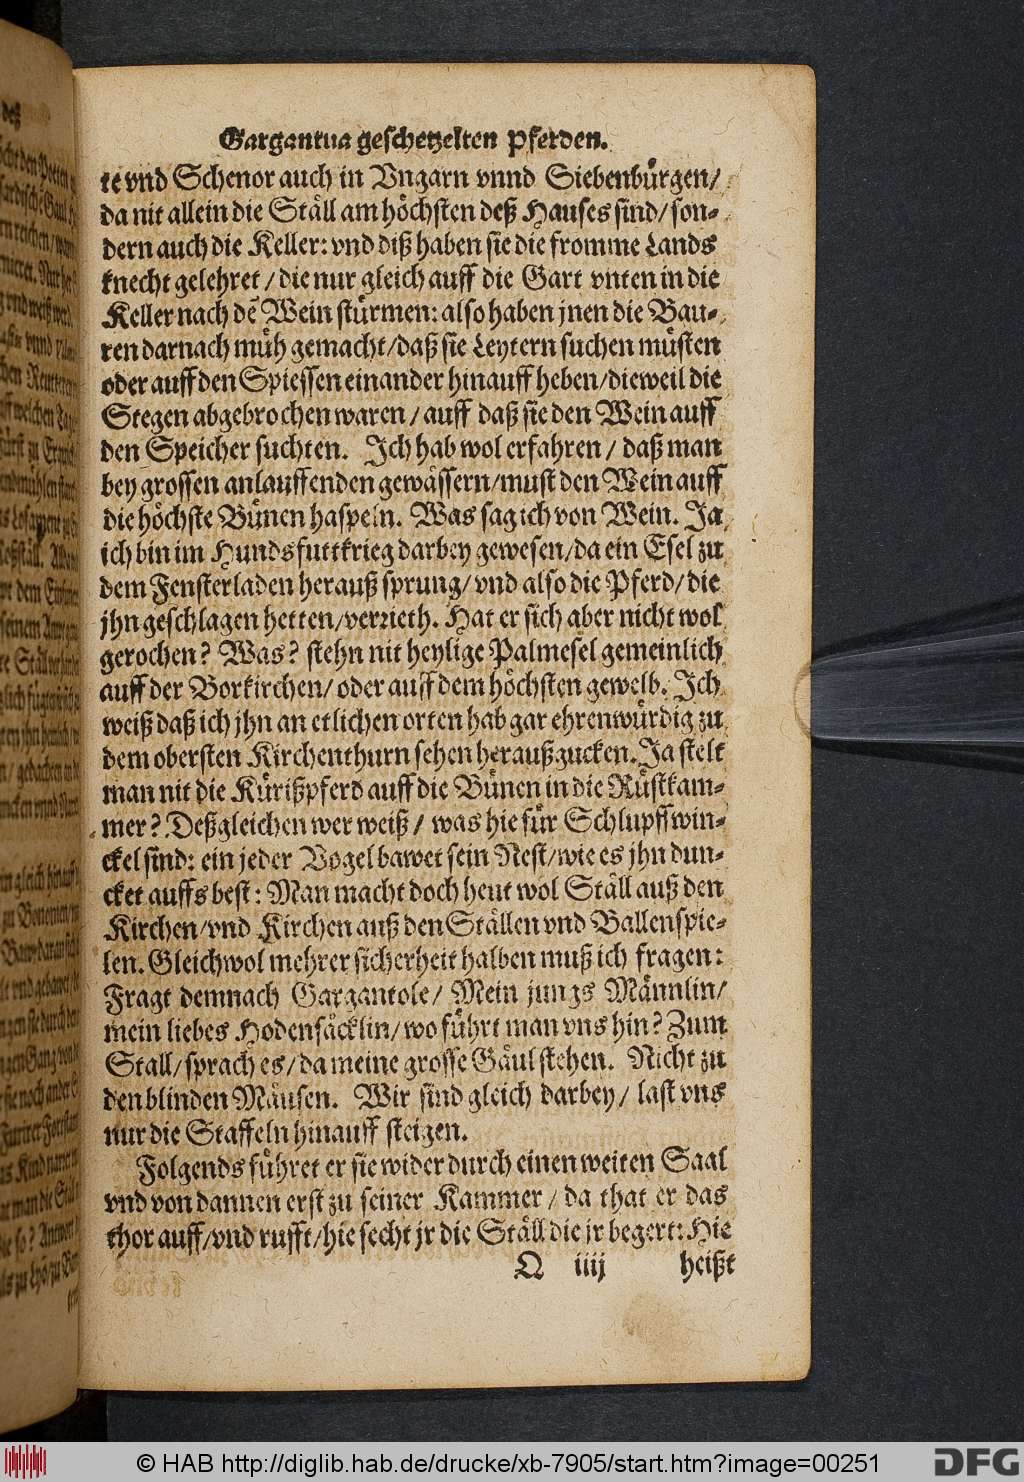 Gargantua geschetzelten Pferden.
te vnd Schenor auch in Vngarn vnnd Siebenbürgen/
da nit allein die Ställ am höchsten deß Hauses sind/ son-
dern auch die Keller: vnd diß haben sie die fromme Lands
knecht gelehret / die nur gleich auff die Gart vnten in die
Keller nach dē Wein stürmen: also haben jnen die Bau-
ren darnach müh gemacht/daß sie Leytern suchen müsten
oder auff den Spiessen einander hinauff heben/dieweil die
Stegen abgebrochen waren / auff daß sie den Wein auff
den Speicher suchten. Ich hab wol erfahren / daß man
bey grossen anlauffenden gewässern/must den Wein auff
die höchste Bünen haspeln. Was sag ich von Wein. Ja
ich bin im Hundsfuttkrieg darbey gewesen/da ein Esel zu
dem Fensterladen herauß sprung/ vnd also die Pferd/ die
jhn geschlagen hetten/verrieth. Hat er sich aber nicht wol
gerochen? Was? stehn nit heylige Palmesel gemeinlich
auff der Borkirchen/ oder auff dem höchsten gewelb. Ich
weiß daß ich jhn an etlichen orten hab gar ehrenwürdig zu
dem obersten Kirchenthurn sehen heraußgucken. Ja stelt
man nit die Kürißpferd auff die Bünen in die Rüstkam-
mer? Deßgleichen wer weiß / was hie für Schlupffwin-
ckel sind: ein jeder Vogel bawet sein Nest/wie es jhn dun-
cket auffs best: Man macht doch heut wol Ställ auß den
Kirchen/vnd Kirchen auß den Ställen vnd Ballenspie-
len. Gleichwol mehrer sicherheit halben muß ich fragen:
Fragt demnach Gargantole/ Mein jungs Männlin/
mein liebes Hodensäcklin/wo führt man vns hin? Zum
Stall/sprach es/da meine grosse Gäul stehen. Nicht zu
den blinden Mäusen. Wir sind gleich darbey/ last vns
nur die Staffeln hinauff steigen.
Folgends führet er sie wider durch einen weiten Saal
vnd von dannen erst zu seiner Kammer / da that er das
thor auff/vnd rufft/hie secht jr die Ställ die jr begert: Hie
Q iiij heißt
© HAB http://diglib.hab.de/drucke/xb-7905/start.htm?image=00251
DFG